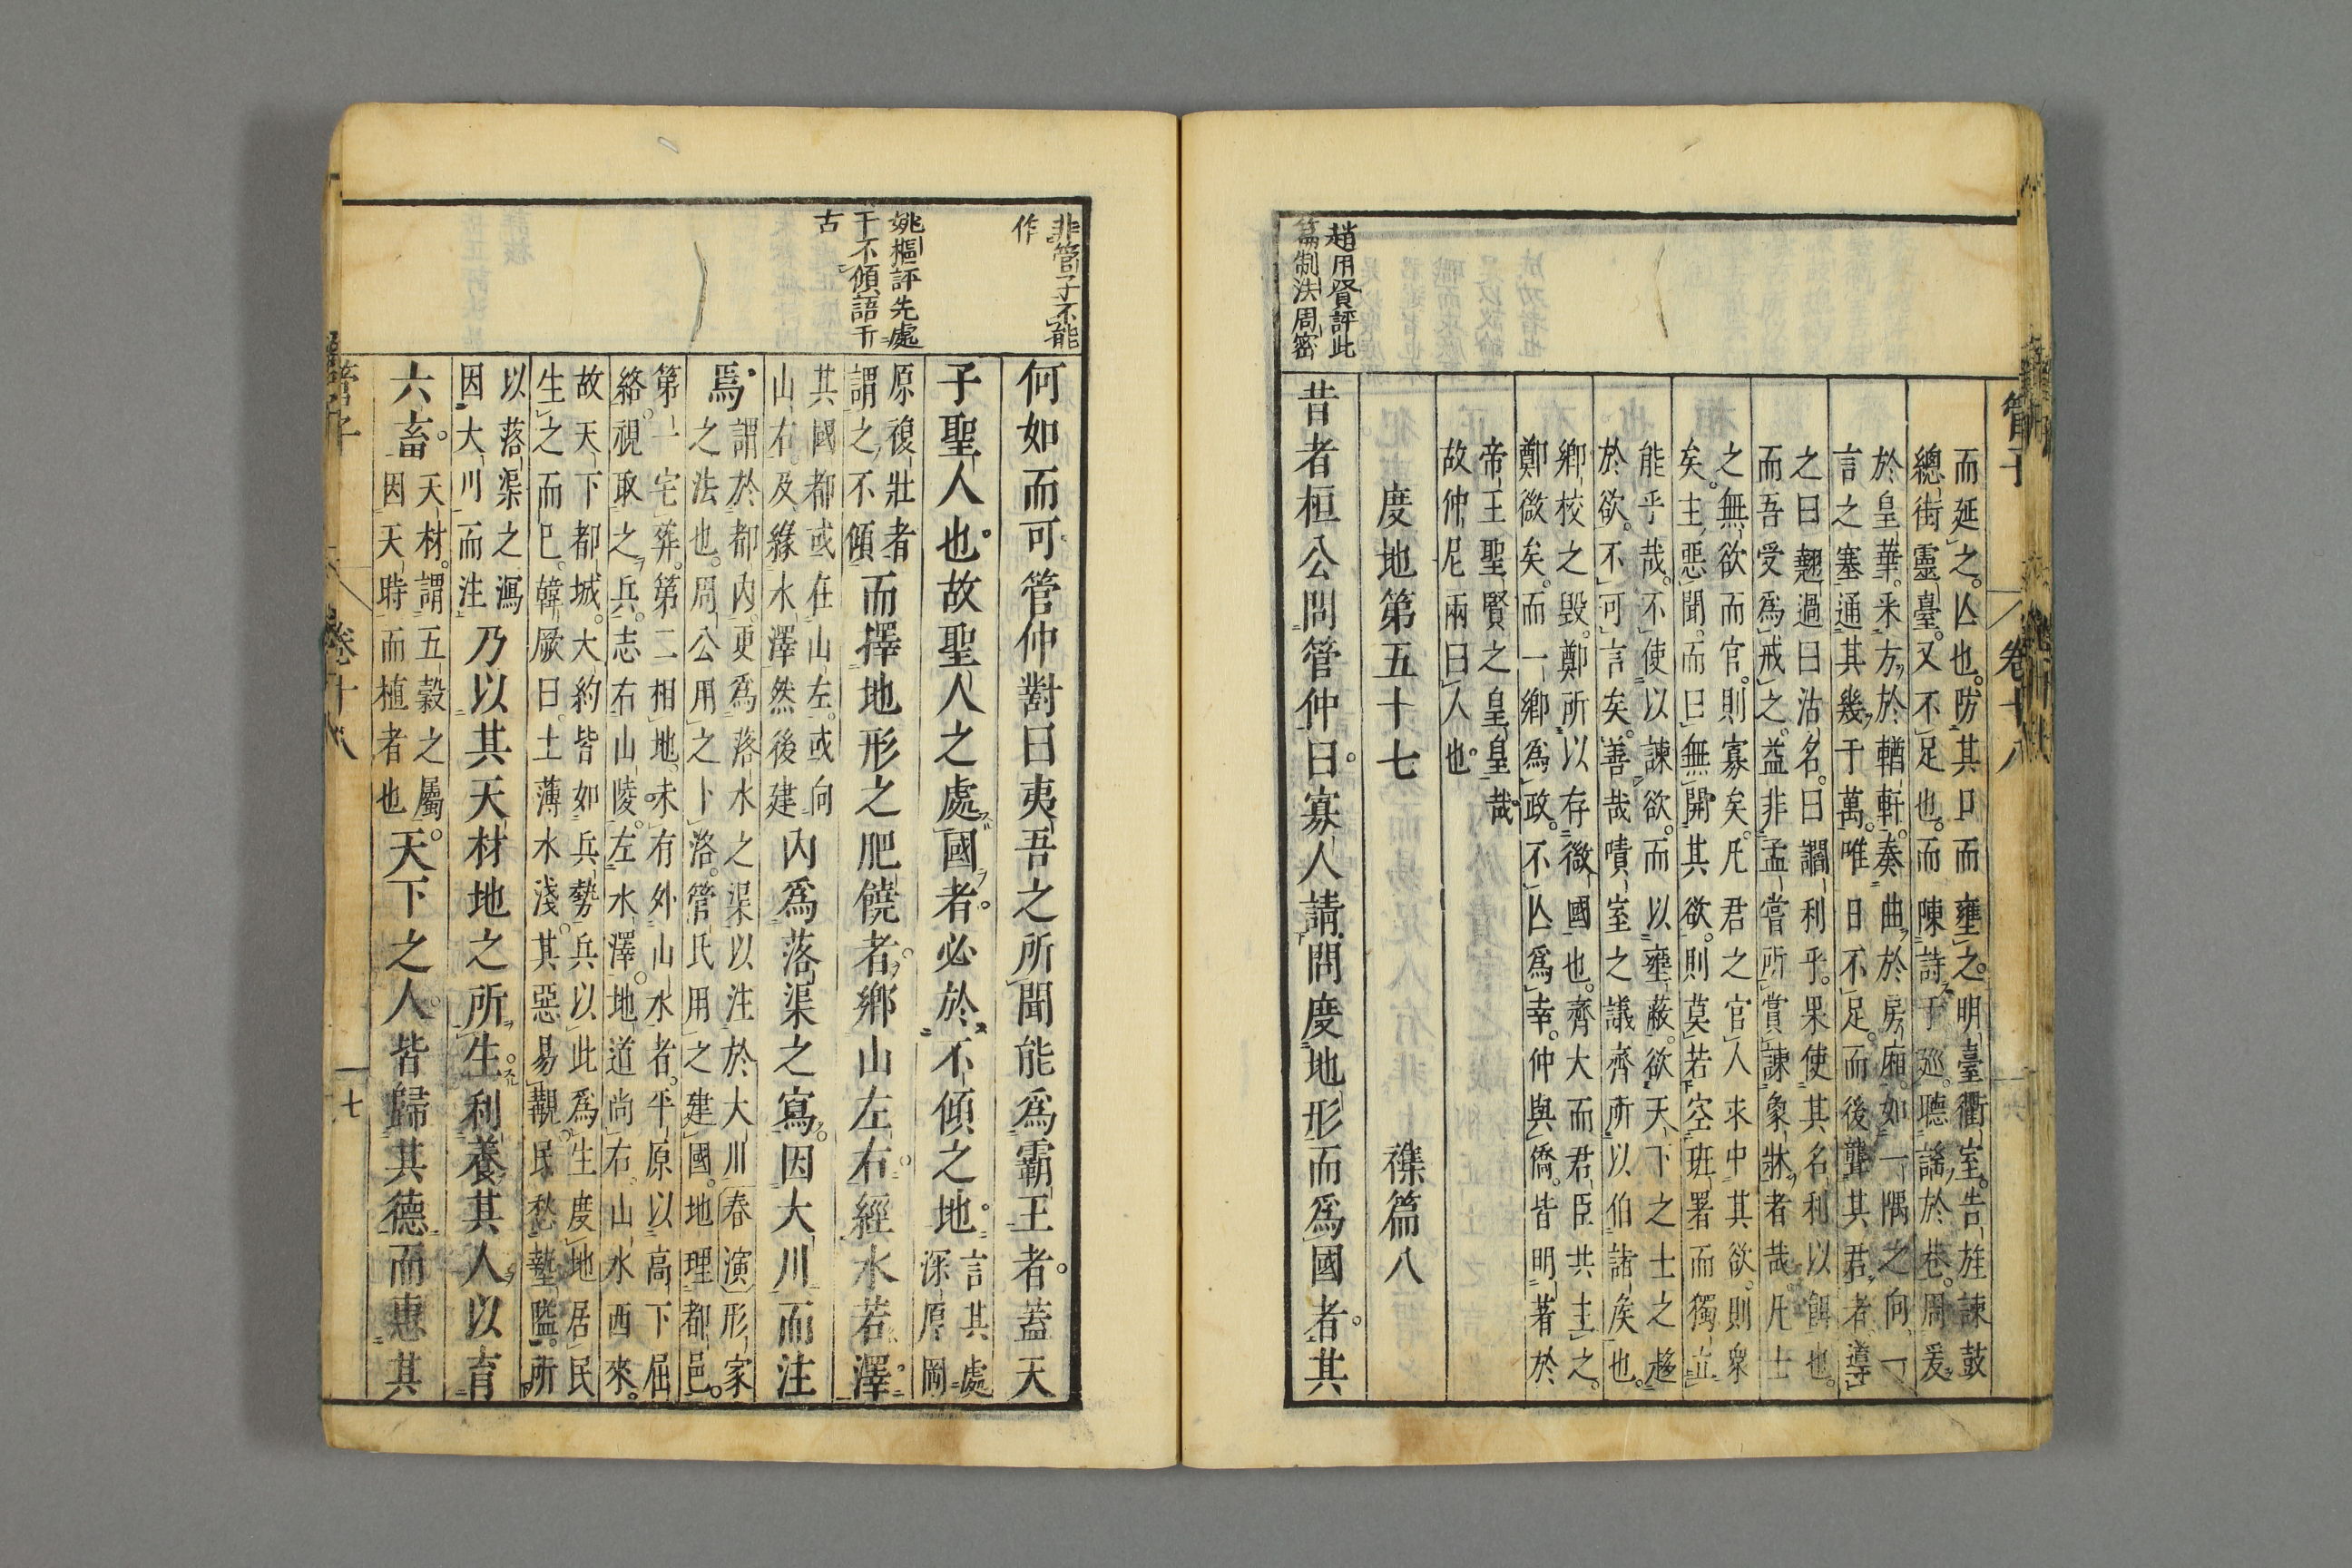 趙用賢評此
篇制法周密
管子　卷十八
而延之。亾也。防其口而壅之。明臺衢室。告旌諫鼓
總街靈臺。又不足也。而陳詩于巡。聽謠於巷。周爰
於皇華。釆方於輶軒。奏曲於房廂。如一隅之向一
言之塞通其幾于萬。唯日不足。而後聾其君者導
之曰翹過曰沽名。曰譾利乎。果使其名利以餌也。
而吾受爲戒之。益非孟嘗所賞諫象牀者哉。凡士
之無欲而官。則寡矣。凡君之官人求中其欲。則衆
矣。主惡聞。而曰無開其欲。則莫若空班署而獨立
能乎哉。不使以諫欲。而以壅蔽。欲天下之士之趨
於欲。不可言矣。善哉嘖室之議齊所以伯諸矦也。
鄉校之毀。鄭所以存微國也。齊大而君臣共主之。
鄭微矣。而一鄉爲政。不亾爲幸。仲與僑。皆明著於
帝王聖賢之皇皇哉。
故仲尼兩曰人也。
度地第五十七　襍篇八
昔者桓公問管仲曰。寡人請問度地形而爲國者。其
非管子不能
作
姚樞評先處
于不傾語亓
古
何如而可管仲對曰夷吾之所聞能爲霸王者。蓋天
子聖人也。故聖人之處國者。必於不傾之地。言其處
深原岡
原複壯者
謂之不傾而擇地形之肥饒者。鄉山左右。經水若澤
其國都或在山左。或向
山右。及緣水澤然後建內爲落渠之寫。因大川而注
焉。謂於都內。更爲落水之渠以注於大川春演形家
之法也。周公用之卜洛。管氏用之建國。地理都邑。
第一宅葬。第二相地。未有外山水者。平原以高下屈
絡。視取之兵。志右山陵。左水澤。地道尚右。山水西來。
故天下都城。大約皆如兵勢兵以此爲生度地居民
生之而已。韓厥曰。土薄水淺。其惡易覯。民愁墊隘。所
以落渠之瀉
因大川而注乃以其天材地之所生。利養其人以育
六畜。天材。謂五穀之屬。
因天時而植者也天下之人。皆歸其德而惠其
管子　卷十八　七